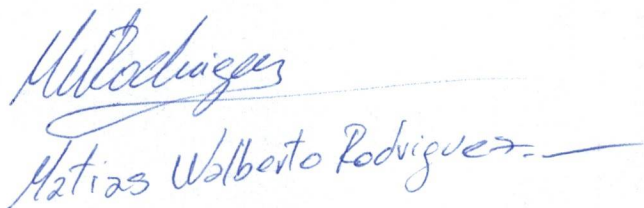 MWRodriguez
Matias Walberto Rodriguez.-